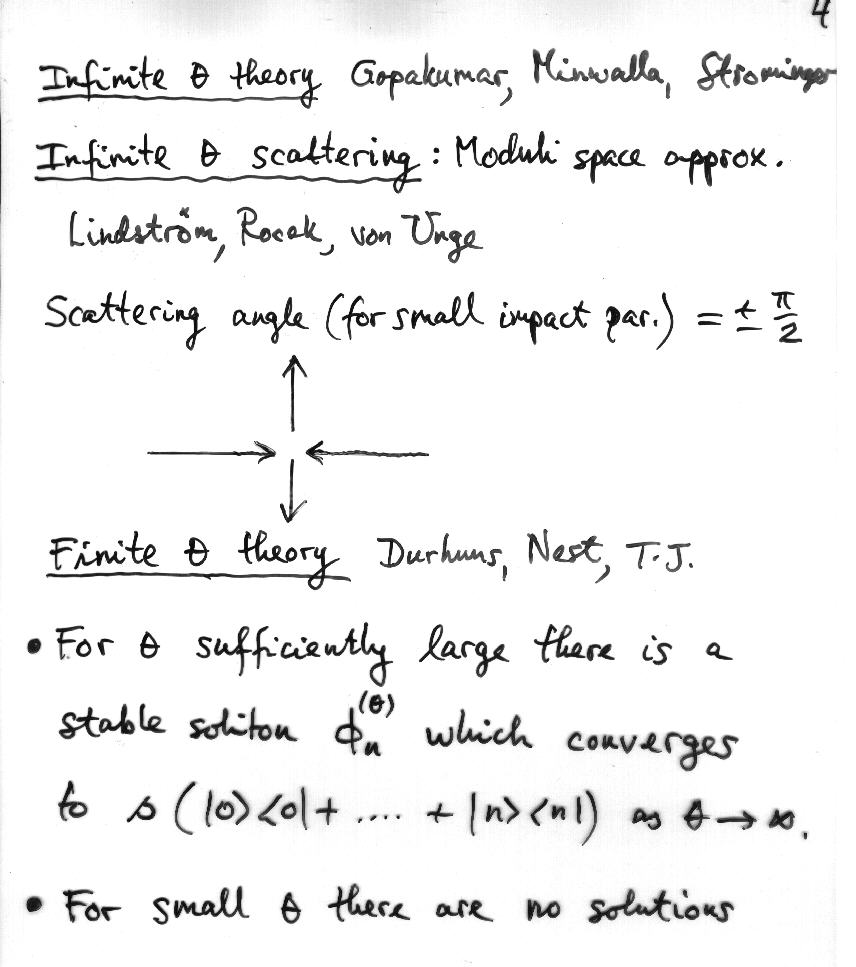 4
Infinite θ theory Gopakumar, Minwalla, Strominger
Infinite θ scattering : Moduli space approx.
Lindström, Rocek, von Unge
Scattering angle (for small impact par.) = ± π/2
Finite θ theory Durhuus, Nest, T.J.
• For θ sufficiently large there is a
stable soliton ϕₙ⁽θ⁾ which converges
to s (|0><0|+ .... + |n><n|) as θ → ∞.
• For small θ there are no solutions